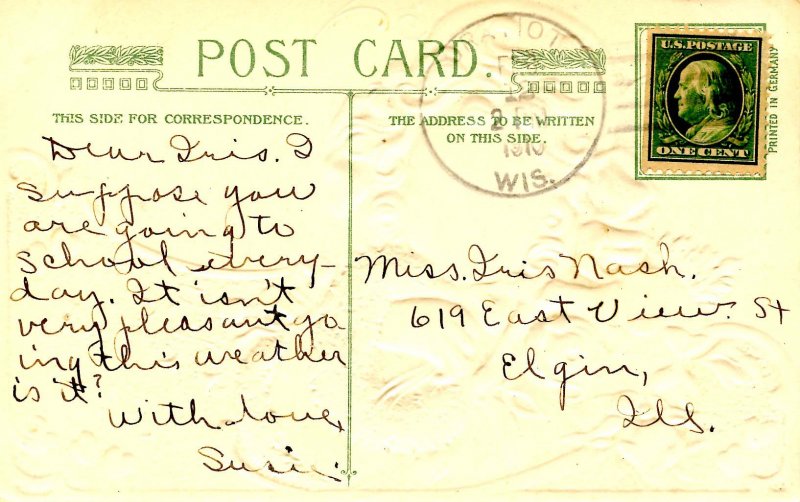 POST CARD.
U.S. POSTAGE
ONE CENT
PRINTED IN GERMANY
1910
WIS.
THIS SIDE FOR CORRESPONDENCE.
THE ADDRESS TO BE WRITTEN
ON THIS SIDE.
Dear Iris. I
suppose you
are going to
school every-
day. It isn't
very pleasant go
ing this weather
is it?
With love,
Susie.
Miss. Iris Nash.
619 East View St
Elgin,
Ills.